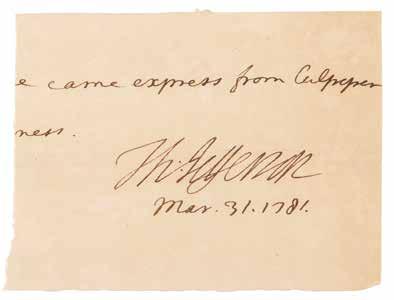 e came express from Culpeper
ness.
Th: Jefferson
Mar. 31. 1781.